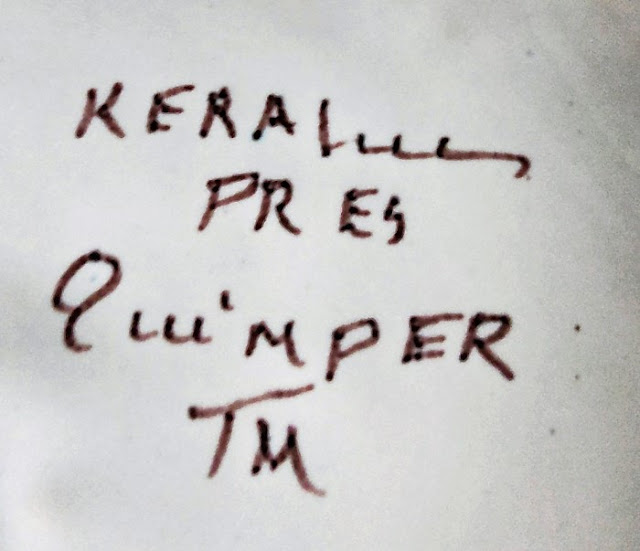 KERALUC
PRES
QUIMPER
TM